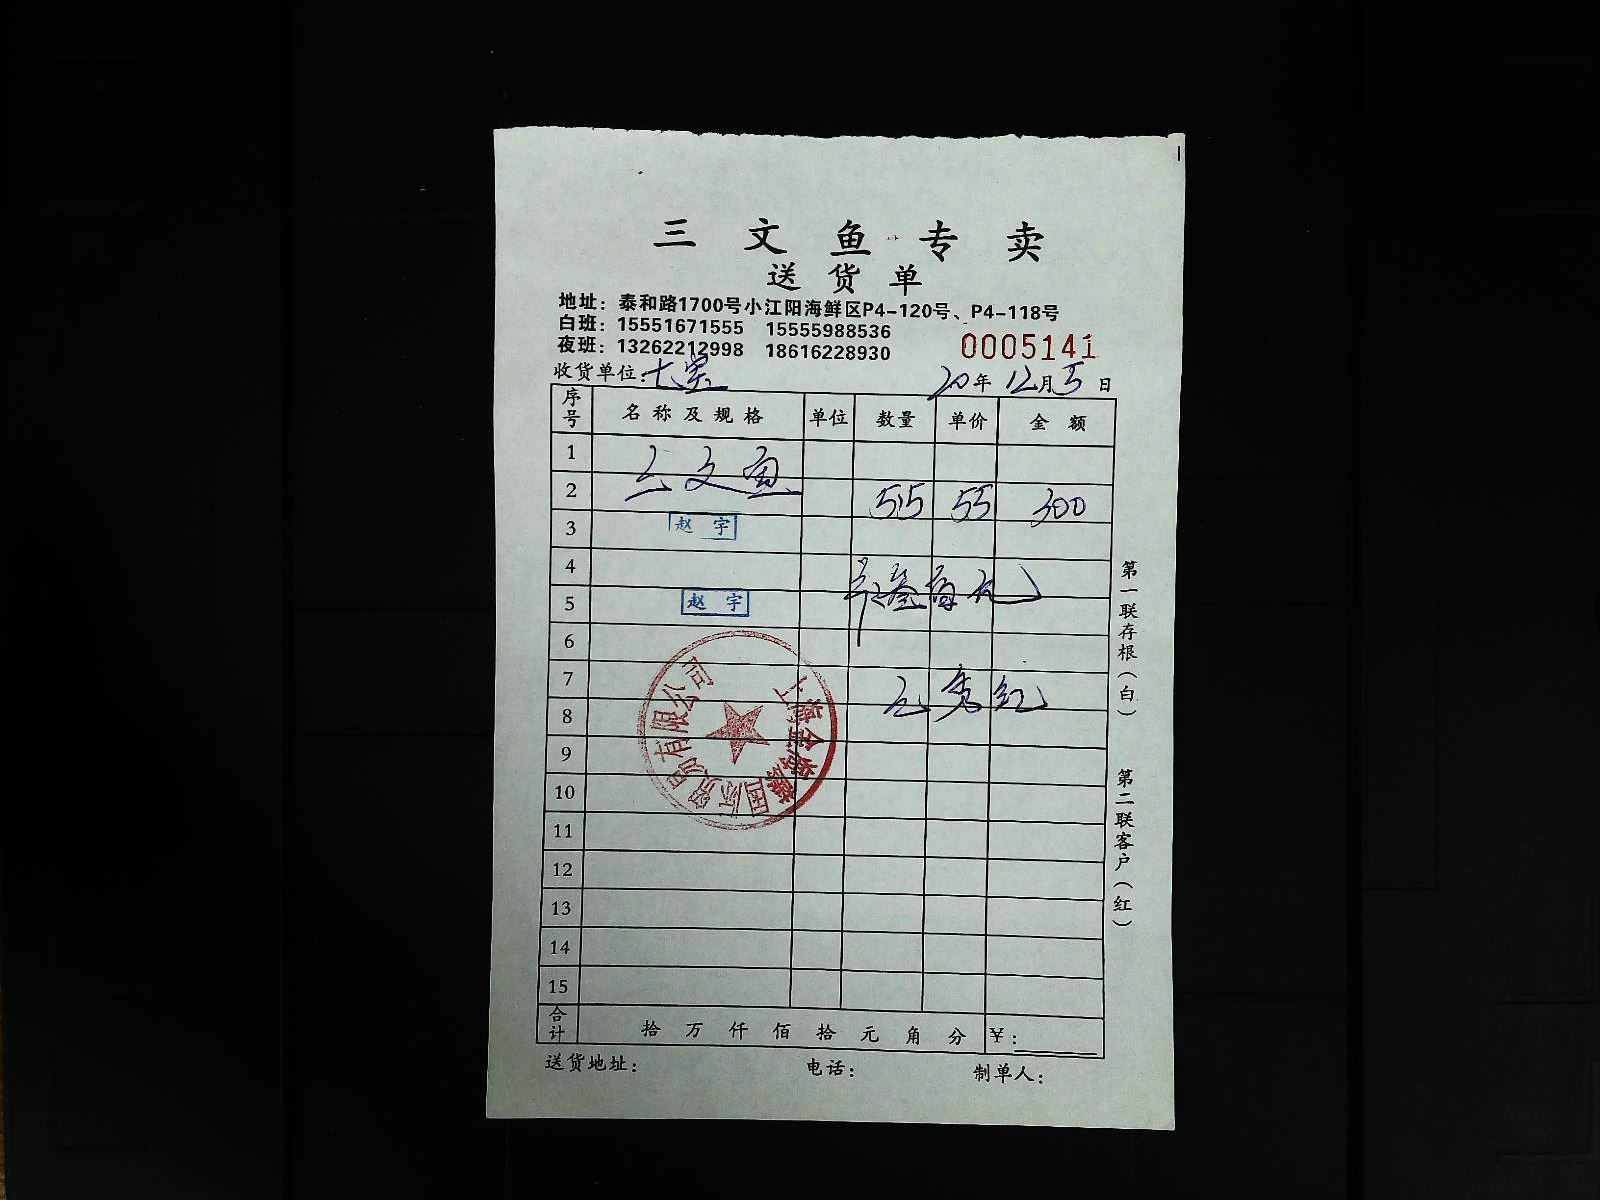 三文鱼专卖
送货单
地址：泰和路1700号小江阳海鲜区P4-120号、P4-118号
白班：15551671555 15555988536
夜班：13262212998 18616228930
0005141
收货单位：
20年12月5日
序号 名称及规格 单位 数量 单价 金额
1 三文鱼
2 515 55 300
3 赵宇
4
5 赵宇
6
7
8
9
10
11
12
13
14
15
上海金海藤国际贸易有限公司
合计 拾万仟佰拾元角分 ¥：
送货地址： 电话： 制单人：
第一联存根（白）
第二联客户（红）